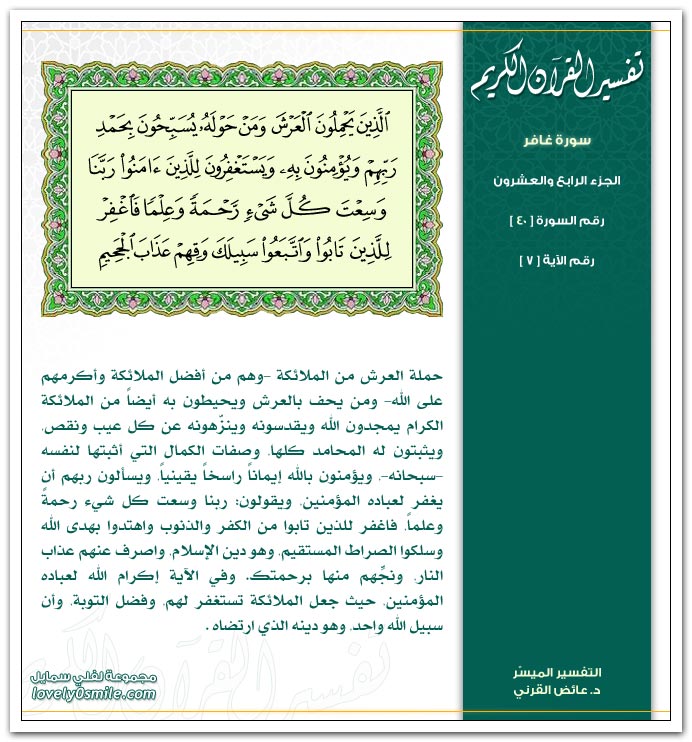 تفسير القرآن الكريم
سورة غافر
الجزء الرابع والعشرون
رقم السورة [ ٤٠ ]
رقم الآية [ ٧ ]
ٱلَّذِينَ يَحْمِلُونَ ٱلْعَرْشَ وَمَنْ حَوْلَهُۥ يُسَبِّحُونَ بِحَمْدِ
رَبِّهِمْ وَيُؤْمِنُونَ بِهِۦ وَيَسْتَغْفِرُونَ لِلَّذِينَ ءَامَنُوا۟ رَبَّنَا
وَسِعْتَ كُلَّ شَىْءٍ رَّحْمَةً وَعِلْمًا فَٱغْفِرْ
لِلَّذِينَ تَابُوا۟ وَٱتَّبَعُوا۟ سَبِيلَكَ وَقِهِمْ عَذَابَ ٱلْجَحِيمِ
حملة العرش من الملائكة -وهم من أفضل الملائكة وأكرمهم
على الله- ومن يحف بالعرش ويحيطون به أيضاً من الملائكة
الكرام يمجدون الله ويقدسونه وينزّهونه عن كل عيب ونقص،
ويثبتون له المحامد كلها، وصفات الكمال التي أثبتها لنفسه
-سبحانه-، ويؤمنون بالله إيماناً راسخاً يقينياً، ويسألون ربهم أن
يغفر لعباده المؤمنين، ويقولون: ربنا وسعت كل شيء رحمةً
وعلماً، فاغفر للذين تابوا من الكفر والذنوب واهتدوا بهدى الله
وسلكوا الصراط المستقيم، وهو دين الإسلام، واصرف عنهم عذاب
النار، ونجِّهم منها برحمتك. وفي الآية إكرام الله لعباده
المؤمنين، حيث جعل الملائكة تستغفر لهم، وفضل التوبة، وأن
سبيل الله واحد، وهو دينه الذي ارتضاه .
التفسير الميسّر
د. عائض القرني
مجموعة لفلي سمايل
lovely0smile.com
تفسير القرآن الكريم